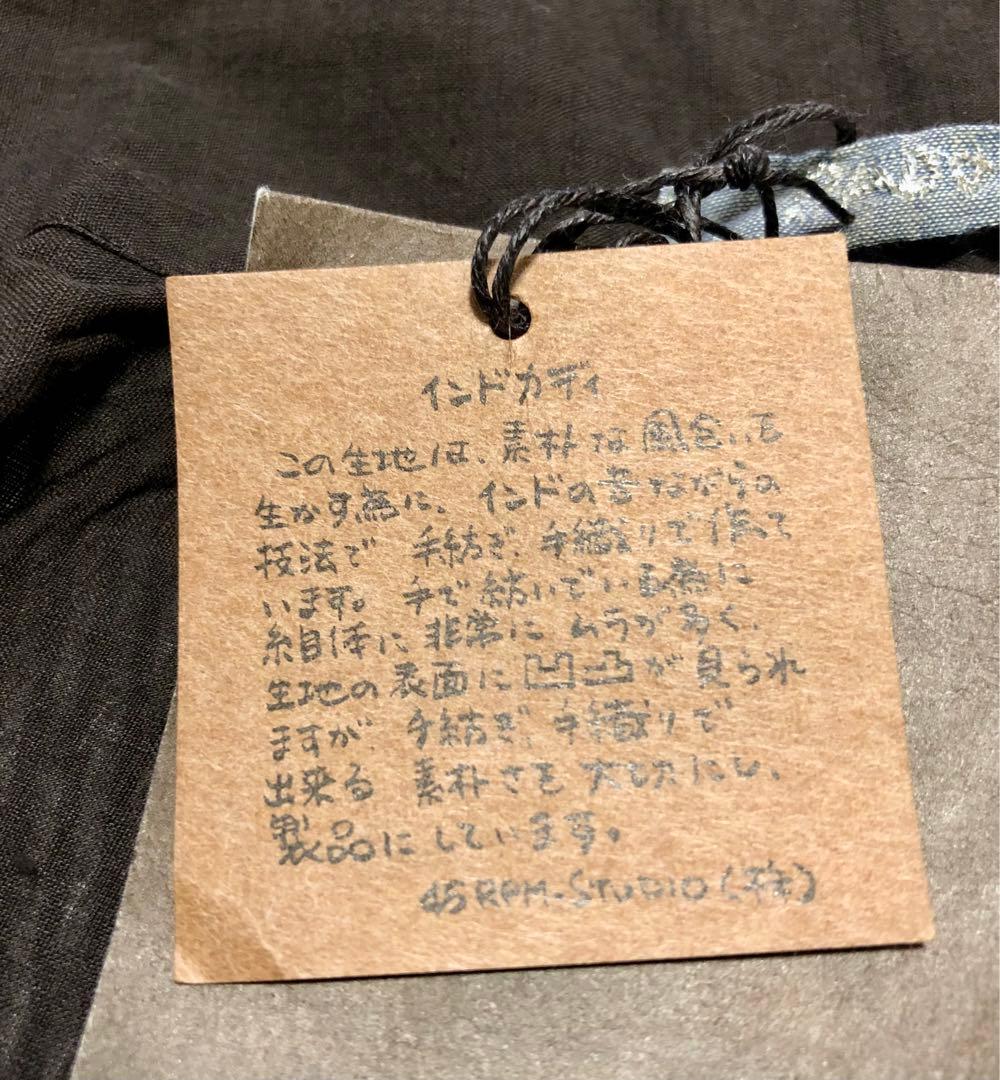 インドカディ
この生地は、素朴な風合いを
生かす為に、インドの昔ながらの
技法で 手紡ぎ、手織りで作って
います。手で紡いでいる為に
糸自体に非常にムラが多く、
生地の表面に凹凸が見られ
ますが、手紡ぎ、手織りで
出来る 素朴さを大切にし、
製品にしています。
45RPM-STUDIO(株)